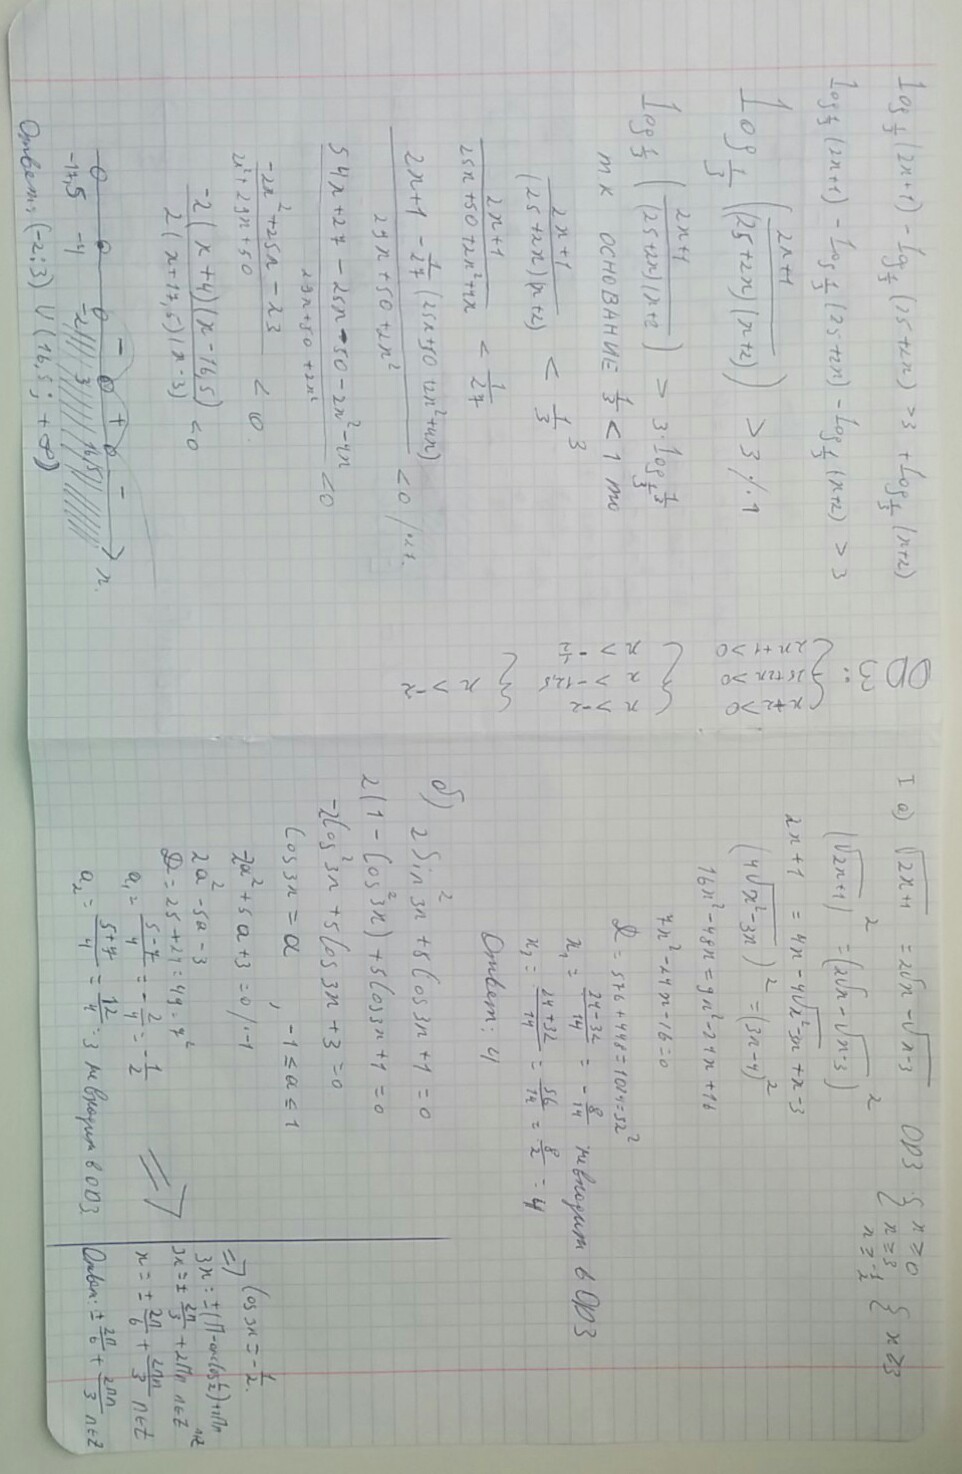 log 1/3 (2x+1) - log 1/3 (25+2x) > 3 + log 1/3 (x+2)
log 1/3 (2x+1) - log 1/3 (25+2x) - log 1/3 (x+2) > 3
log 1/3 ((2x+1)/((25+2x)(x+2))) > 3 /·1
log 1/3 ((2x+1)/((25+2x)(x+2))) > 3·log 1/3 1/3
т к основание 1/3 < 1 то
(2x+1)/((25+2x)(x+2)) < 1/3 ³
(2x+1)/(25x+50+2x²+4x) < 1/27
(2x+1 - 1/27 (25x+50+2x²+4x))/(29x+50+2x²) < 0
(54x+27-25x-50-2x²-4x)/(29x+50+2x²) < 0
(-2x²+25x-23)/(2x²+29x+50) < 0
(-2(x+4)(x-16,5))/(2(x+17,5)(x-3)) < 0
-17,5 -4 -2 3 16,5 x
- + -
Ответ: (-2; 3) U (16,5; +∞)
ОДЗ:
{ x+2>0
25+2x>0
2x+1>0
{ x > -2
x > -12,5
x > -1/2
{ x > -2
I а) √(2x+1) = 2√x - √(x-3) ОДЗ { x ≥ 0
x ≥ 3
x ≥ -1/2 { x ≥ 3
(√(2x+1))² = (2√x - √(x-3))²
2x+1 = 4x - 4√(x²-3x) + x-3
(4√(x²-3x))² = (3x-4)²
16x²-48x = 9x²-24x+16
7x²-24x-16=0
D = 576+448=1024=32²
x₁ = (24-32)/14 = -8/14 не входит в ОДЗ
x₂ = (24+32)/14 = 56/14 = 8/2 = 4
Ответ: 4
б) 2Sin²3x+5Cos3x+1=0
2(1-Cos²3x)+5Cos3x+1=0
-2Cos²3x+5Cos3x+3=0
Cos3x = a, -1≤a≤1
-2a²+5a+3=0 /·-1
2a²-5a-3
D = 25+24=49=7²
a₁ = (5-7)/4 = -2/4 = -1/2
a₂ = (5+7)/4 = 12/4 = 3 не входит в ОДЗ
=> Cos3x = -1/2
3x = ±(П-arccos(1/2))+2Пn n∈Z
3x = ± 2П/3 + 2Пn n∈Z
x = ± 2П/6 + 2Пn/3 n∈Z
Ответ: ± 2П/6 + 2Пn/3 n∈Z